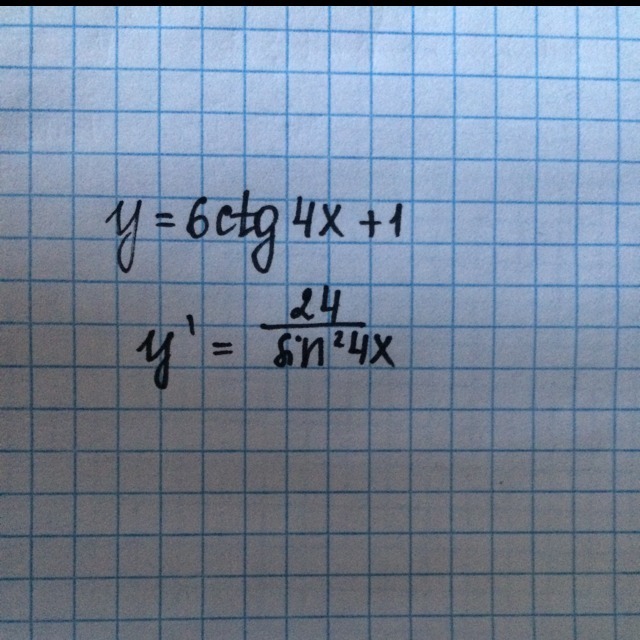 y = 6ctg 4x + 1
y' = 24/sin²4x